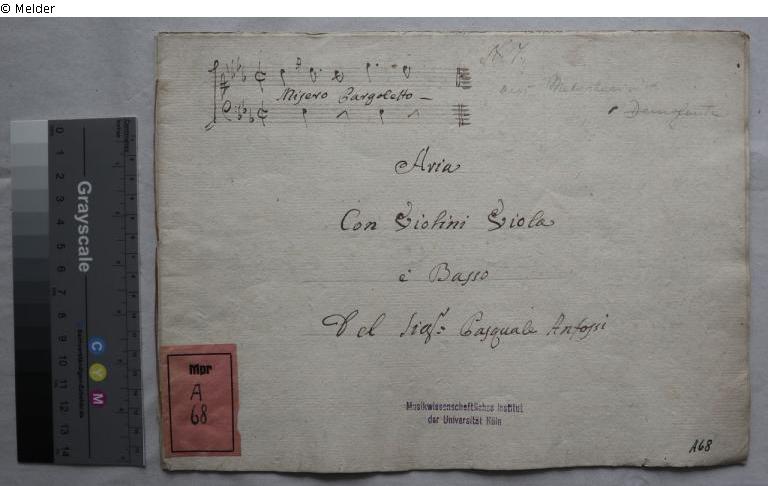 © Melder
N. 7.
aus
Misero Pargoletto –
Aria
Con Violini Viola
e Basso
Del Sigr. Pasquale Anfossi
Mpr
A
68
Musikwissenschaftliches Institut
der Universität Köln
A68
Grayscale
0 1 2 3 4 5 6 7 8 9 10 11 12 13 14
C
Y
M